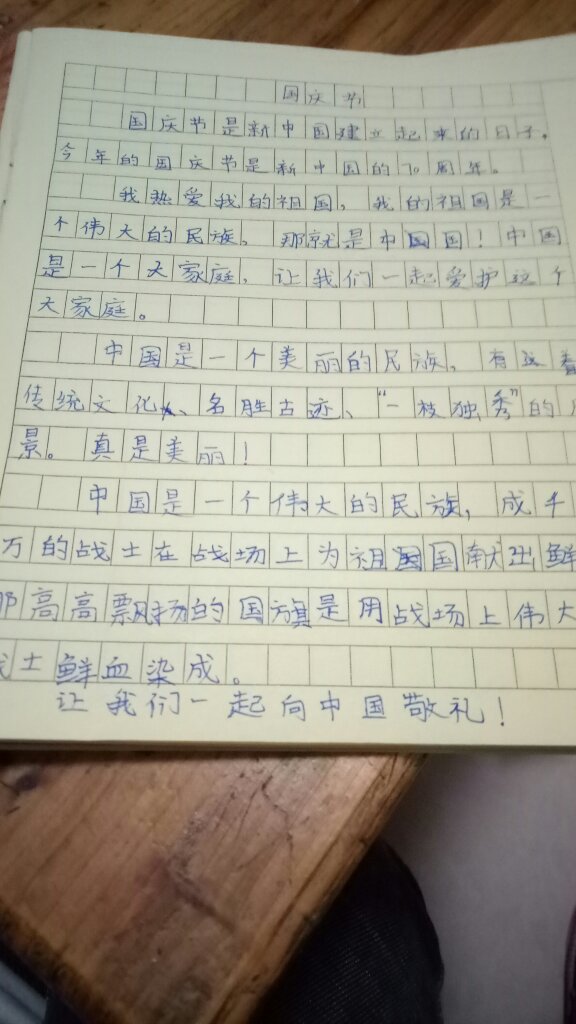 国庆节
国庆节是新中国建立起来的日子,
今年的国庆节是新中国的70周年。
我热爱我的祖国,我的祖国是一
个伟大的民族,那就是中国国!中国
是一个大家庭,让我们一起爱护这个
大家庭。
中国是一个美丽的民族,有这着
传统文化、名胜古迹、“一枝独秀”的
景。真是美丽!
中国是一个伟大的民族,成千
万的战士在战场上为祖国国献出鲜
那高高飘扬的国旗是用战场上伟大
战士鲜血染成。
让我们一起向中国敬礼!